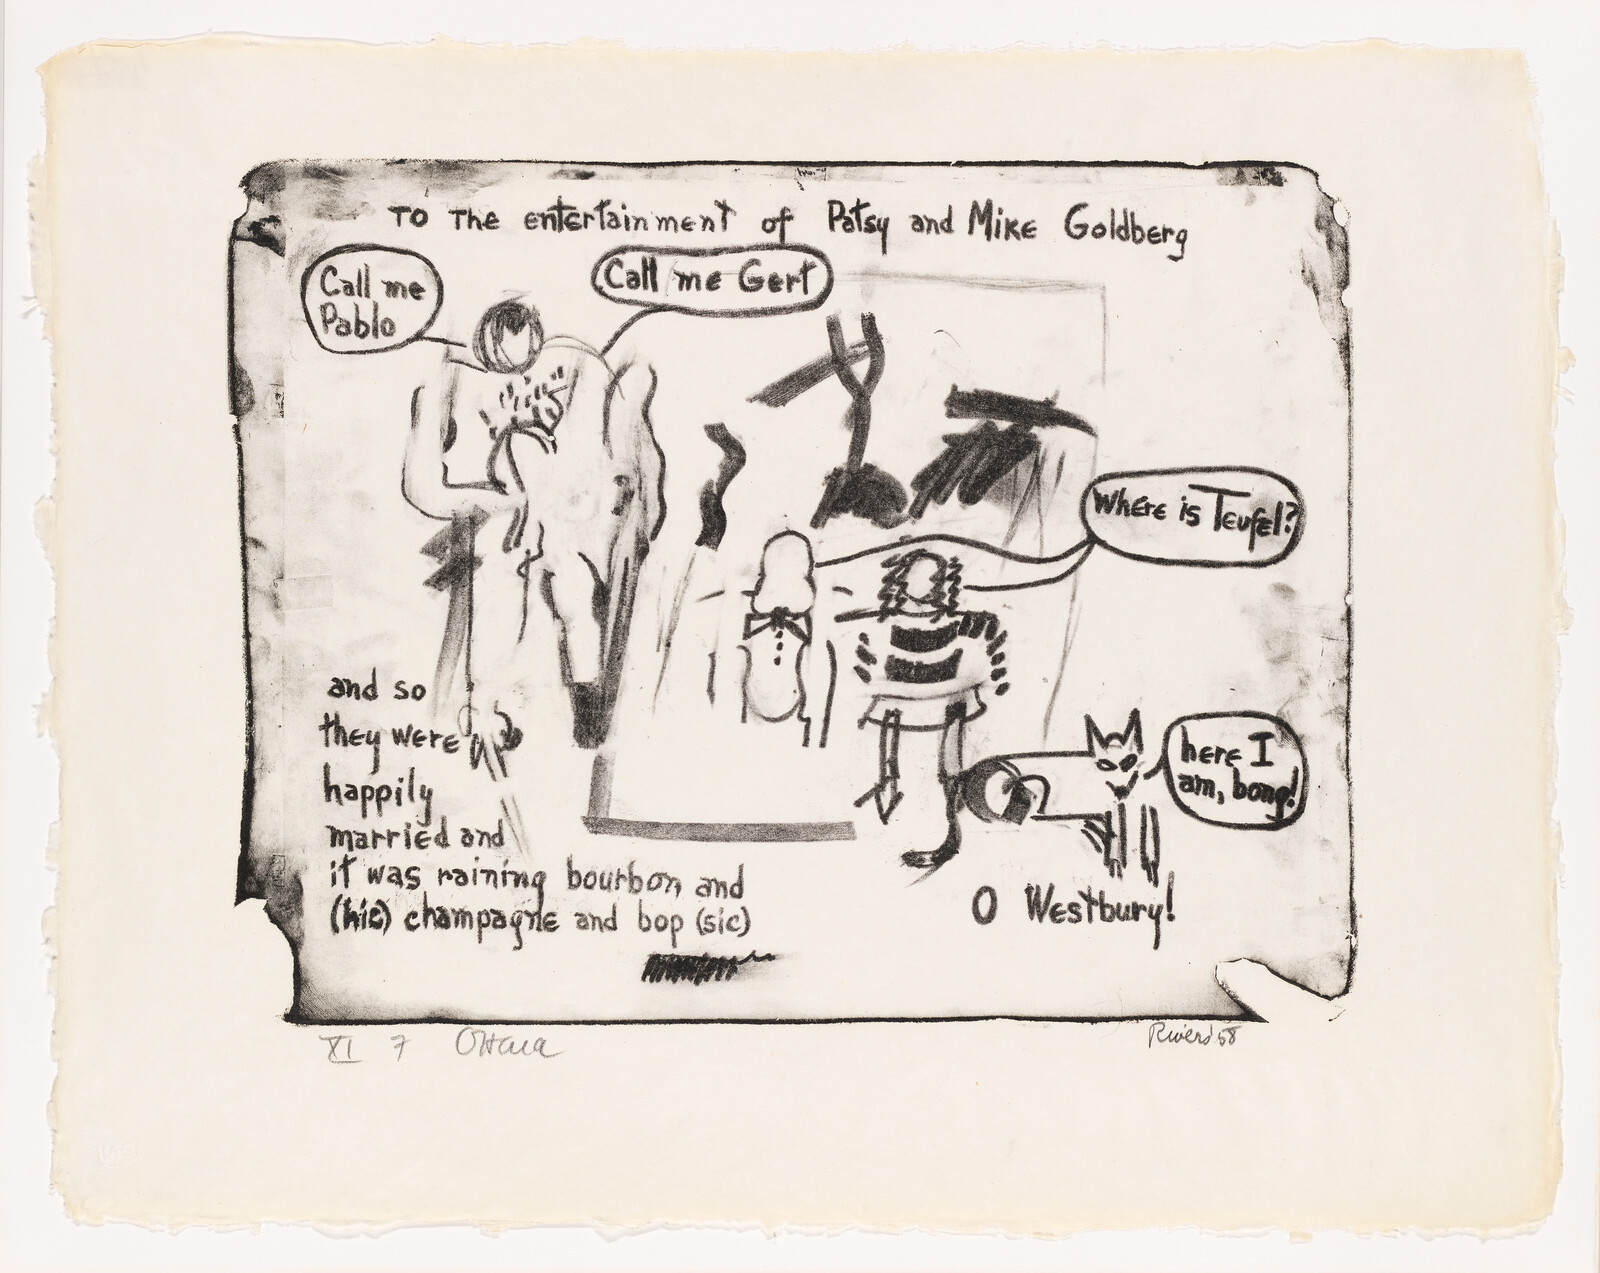 TO The entertainment of Patsy and Mike Goldberg
Call me
Pablo
Call me Gert
Where is Teufel?
here I
am, bong!
and so
they were
happily
married and
it was raining bourbon and
(hic) champagne and bop (sic)
O Westbury!
XI 7 O'Hara
Rivers '58